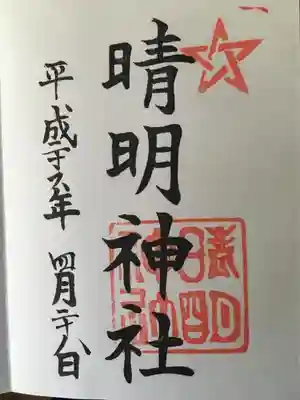 晴明神社
晴明
神社
平成 年 四月二十八日